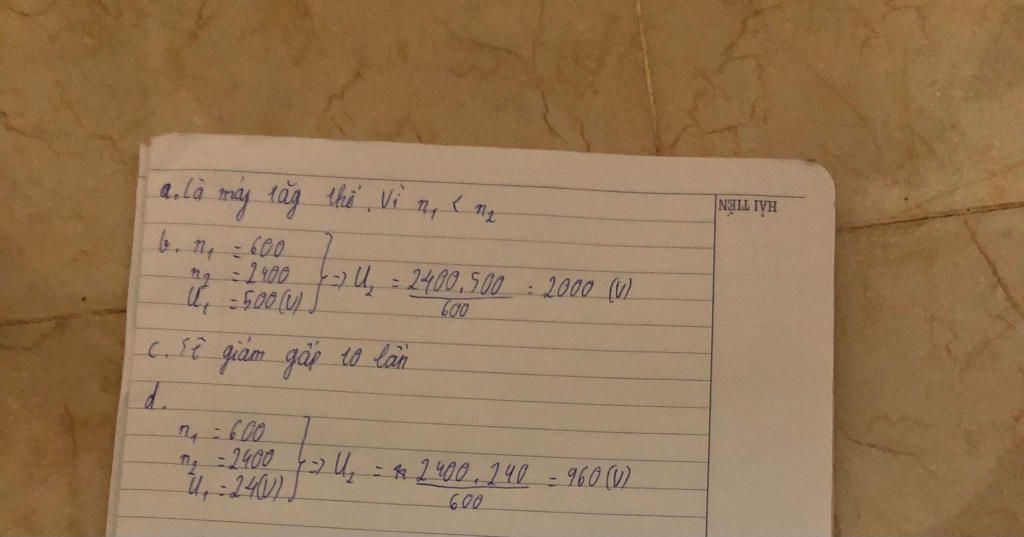 HẢI TIẾN
a. Là máy tăg thế. Vì n₁ < n₂
b. n₁ = 600
n₂ = 2400
U₁ = 500(V)
=> U₂ = 2400.500 / 600 = 2000 (V)
c. Sẽ giảm gấp 10 lần
d.
n₁ = 600
n₂ = 2400
U₁ = 24(V)
=> U₂ = 2400.240 / 600 = 960 (V)